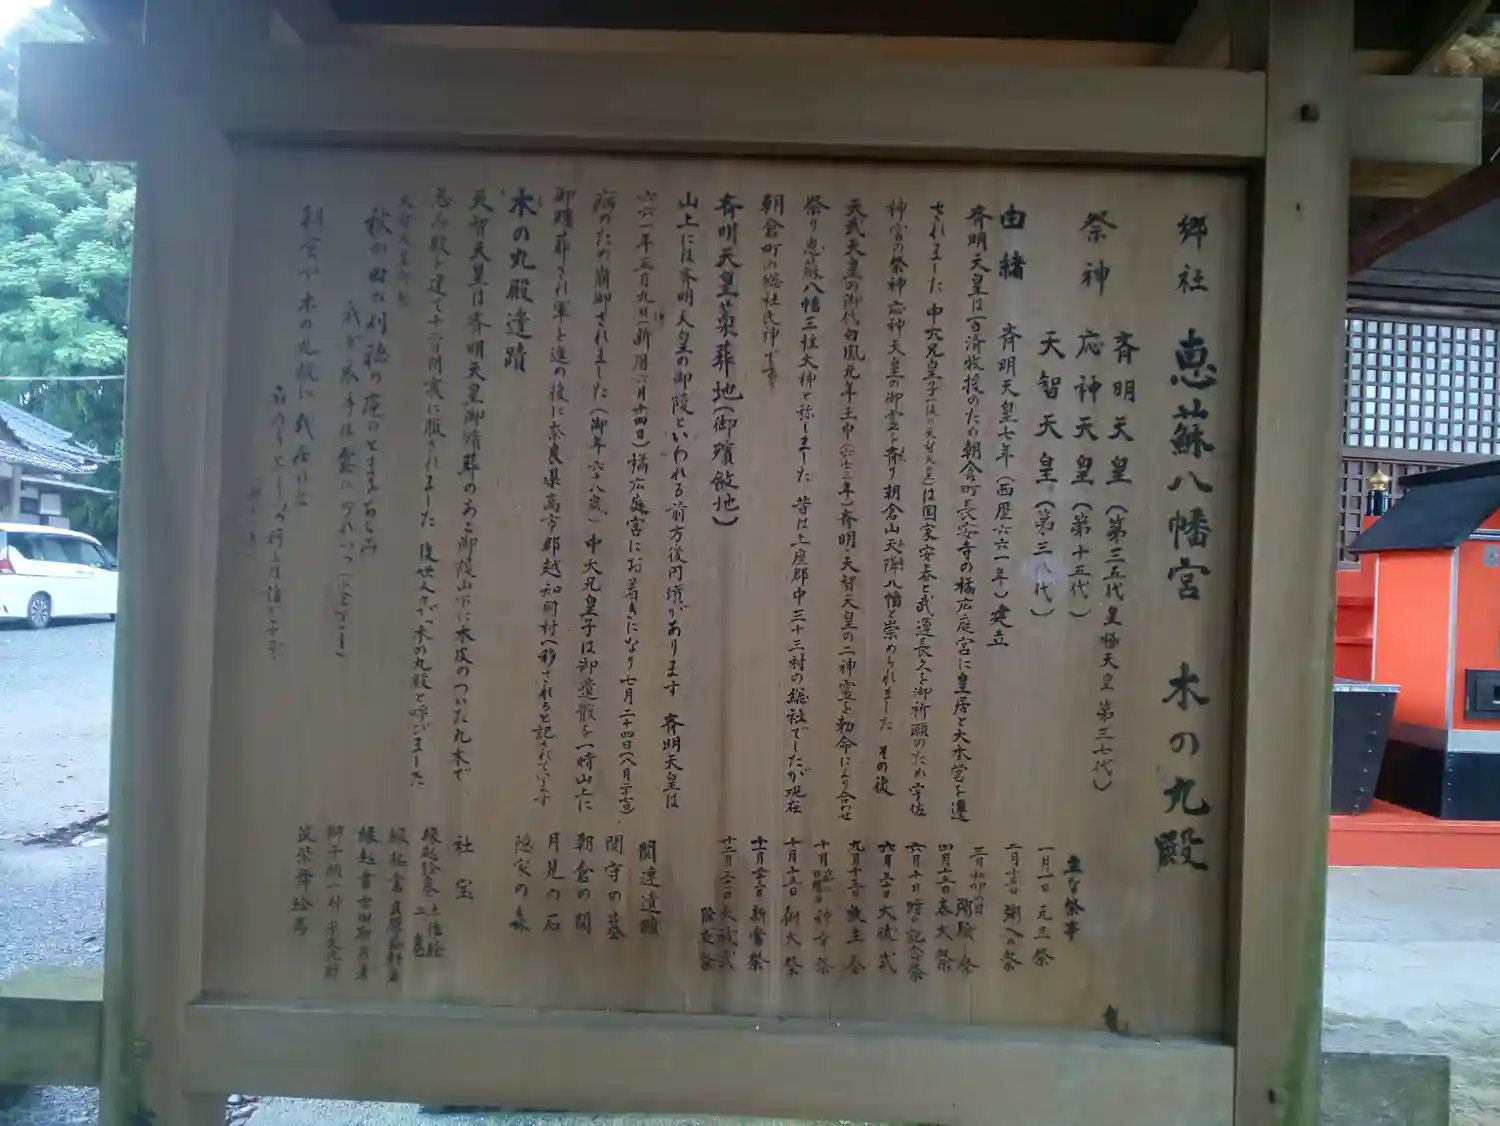 郷社 恵蘇八幡宮 木の丸殿
祭神 斉明天皇(第三五代皇極天皇第三七代)
応神天皇(第十五代)
天智天皇(第三八代)
由緒 斉明天皇七年(西歴六六一年)建立
斉明天皇は百済救援のため朝倉町長安寺の橘広庭宮に皇居と大本営を遷
されました 中大兄皇子(後の天智天皇)は国家安泰と武運長久を御祈願のため宇佐
神宮の祭神 応神天皇の御霊を斉り朝倉山天降八幡と崇められました その後
天武天皇の御代白鳳元年壬申(六七三年)斉明・天智天皇の二神霊を勅命により合わせ
祭り恵蘇八幡三柱大神と称しました 昔は上座郡中三十三村の総社でしたが現在
朝倉町の総社氏神です
斉明天皇藁葬地(御殯斂地)
山上には斉明天皇の御陵といわれる前方後円墳があります 斉明天皇は
六六一年五月九日(新暦六月十四日)橘広庭宮にお着きになり七月二十四日(八月二十七日)
病のため崩御されました(御年六十八歳) 中大兄皇子は御遺骸を一時山上に
御殯葬され軍と進の後に奈良県高市郡越知村へ移されると記されています
木の丸殿遺蹟
天智天皇は斉明天皇御殯葬のあと御陵山下に木皮のついた丸木で
忌み殿を建て十二ヶ月間喪に服されました 後世人々が木の丸殿と呼びました
天智天皇御製
秋の田の刈穂の庵のとまをあらみ
我が衣手は露にぬれつつ
朝倉や木の丸殿に我居れば
名のりをしつつ行くは誰が子ぞ
主な祭事
一月一日 元旦祭
二月十五日 粥入れ祭
三月初卯の日 粥験し祭
四月十五日 春大祭
六月十日 時の記念祭
六月三十日 大祓式
九月十五日 放生会
十月 神幸祭
十月十五日 例大祭
十一月二十三日 新嘗祭
十二月三十一日 大祓式
除夜祭
関連遺蹟
関守の墓
朝倉の関
月見の石
隠家の森
社宝
縁起絵巻 土佐絵 二巻
縁起書 貝原益軒書
縁起書 古田
獅子頭一対
筑紫舞絵馬